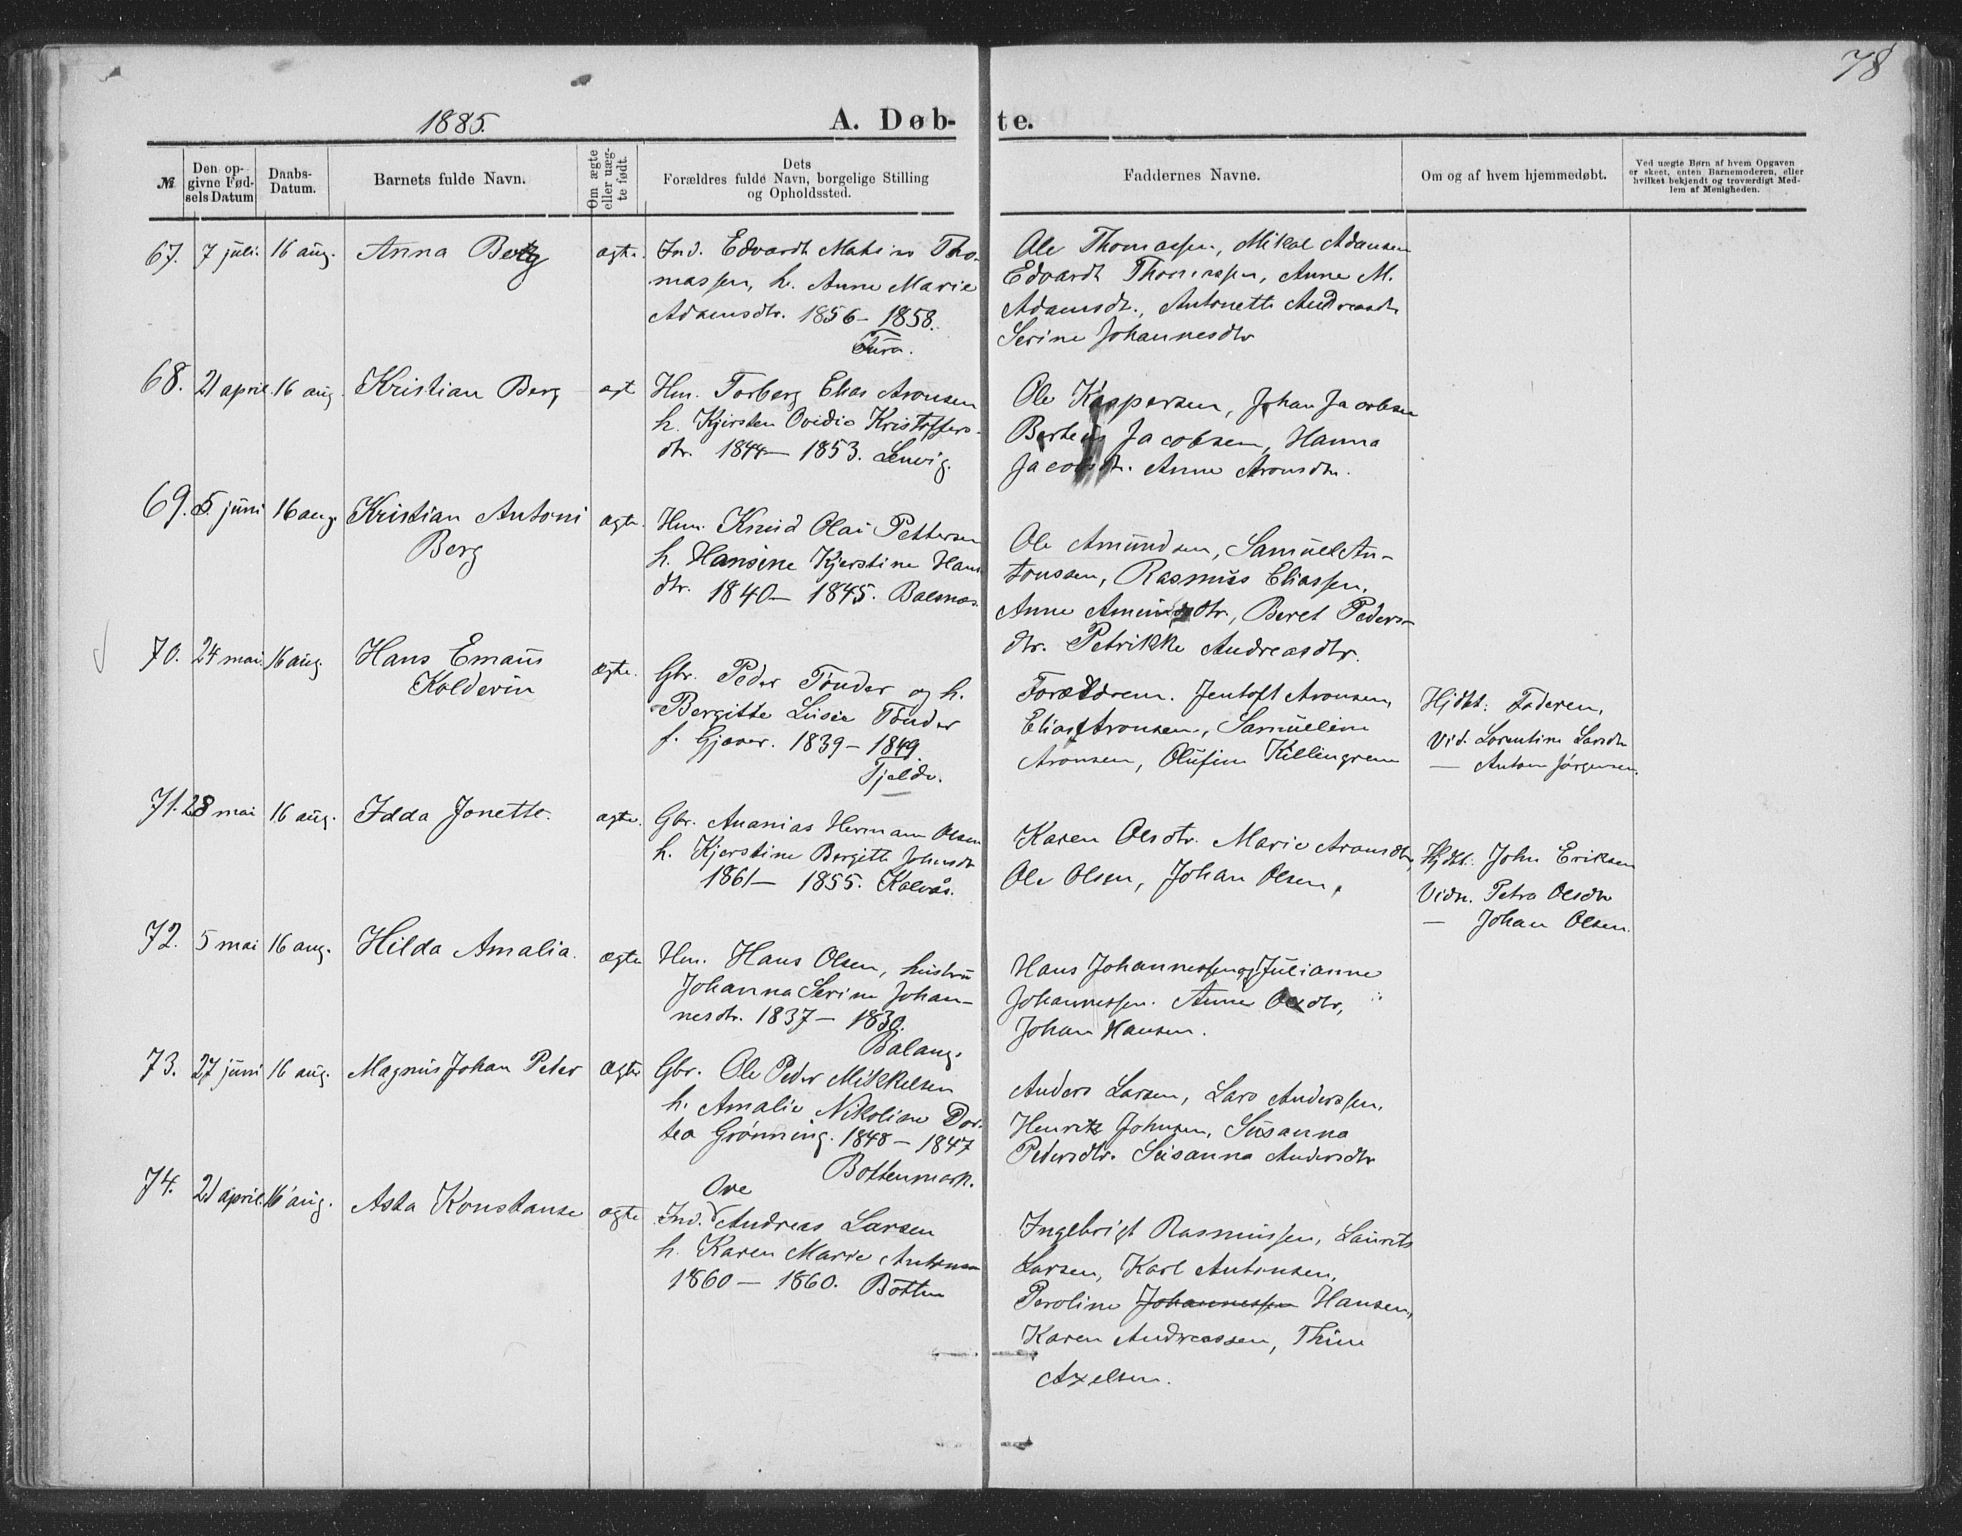 78
1885.
A. Døb-
te.
№
Den op-
givne Fød-
sels Datum
Daabs-
Datum.
Barnets fulde Navn.
Om ægte
eller uæg-
te født.
Dets
Forældres fulde Navn, borgelige Stilling
og Opholdssted.
Faddernes Navne.
Om og af hvem hjemmedøbt.
Ved uægte Børn af hvem Opgaven
er skeet, enten Barnemoderen, eller
hvilket bekjendt og troværdigt Med-
lem af Menigheden.
67. 7 juli. 16 aug. Anna Berg ægte.
Ind. Edvardt Tho-
massen, h. Anne Marie
Adamsdtr. 1856 - 1858.
Ole Thomassen, Mikal Adamsen
Edvardt Thomassen, Anne M.
Adamsdt., Antonette Andreasdtr
Serine Johannesdtr
68. 21 april 16 aug. Kristian Berg ægt
Hm. Torberg Elias Aronsen
h. Kjersten Ovidie Kristoffers-
dtr. 1844 - 1853. Lenvig.
Ole Kaspersen, Johan Jacobsen
Berteus Jacobsen, Hanna
Jacobsdt. Anne Aronsdtr.
69. 5 juni 16 aug. Kristian Antoni
Berg
ægte.
Hm. Knud Olai Pettersen
h. Hansine Kjerstine Hans
dtr. 1840 - 1845. Balsnes.
Ole Amundsen, Samuel An-
tonssen, Rasmus Eliassen,
Anne Amundsdtr., Beret Peders-
dtr. Petrikke Andreasdtr.
70. 24 mai 16 aug. Hans Emaus
Kolderin
ægte.
Gbr. Peder Tønder og h.
Bergitte Lusie Tønder
f. Gjæver. 1839 - 1849.
Tjelde.
Forældrene. Jentoft Aronsen,
Elias Aronsen, Samueline
Aronsen, Olufine Killengreen
Hjdbt: Faderen,
Vid. Lorentine Larsdtr
— Anton Jørgensen.
71. 28 mai 16 aug. Idda Jonette. ægte.
Gbr. Ananias Hermann Olsen
h. Kjerstine Bergitte Johnsdtr
1861 - 1855. Kalvås.
Karen Olsdtr. Marie Aronsdtr,
Ole Olsen, Johan Olsen,
Hjdbt: John Eriksen
Vidn. Petra Olsdtr
— Johan Olsen.
72. 5 mai 16 aug. Hilda Amalia. ægte
Hm. Hans Olsen, hustru
Johanna Serine Johan-
nesdtr. 1837 - 1839.
Balang.
Hans Johannessen og Julianne
Johannessen. Anne Olsdtr,
Johan Hansen.
73. 27 juni 16 aug. Magnus Johan Peter ægte
Gbr. Ole Peder Mikkelsen
h. Amalie Nikoline Dor-
tea Grønning. 1848 - 1847
Bottenmark.
Anders Larsen, Lars Anderssen,
Henrik Johnsen, Susanna
Pedersdtr. Susanna Andersdtr
74. 21 april. 16 aug. Asta Konstanse ægte
Ove
Ind. Andreas Larsen
h. Karen Marie Antonsen
1860 - 1860. Botten
Ingebrigt Rasmussen, Laurits
Larsen, Karl Antonsen,
Peroline Johannessen Hansen,
Karen Andreassen, Thine
Axelsen.